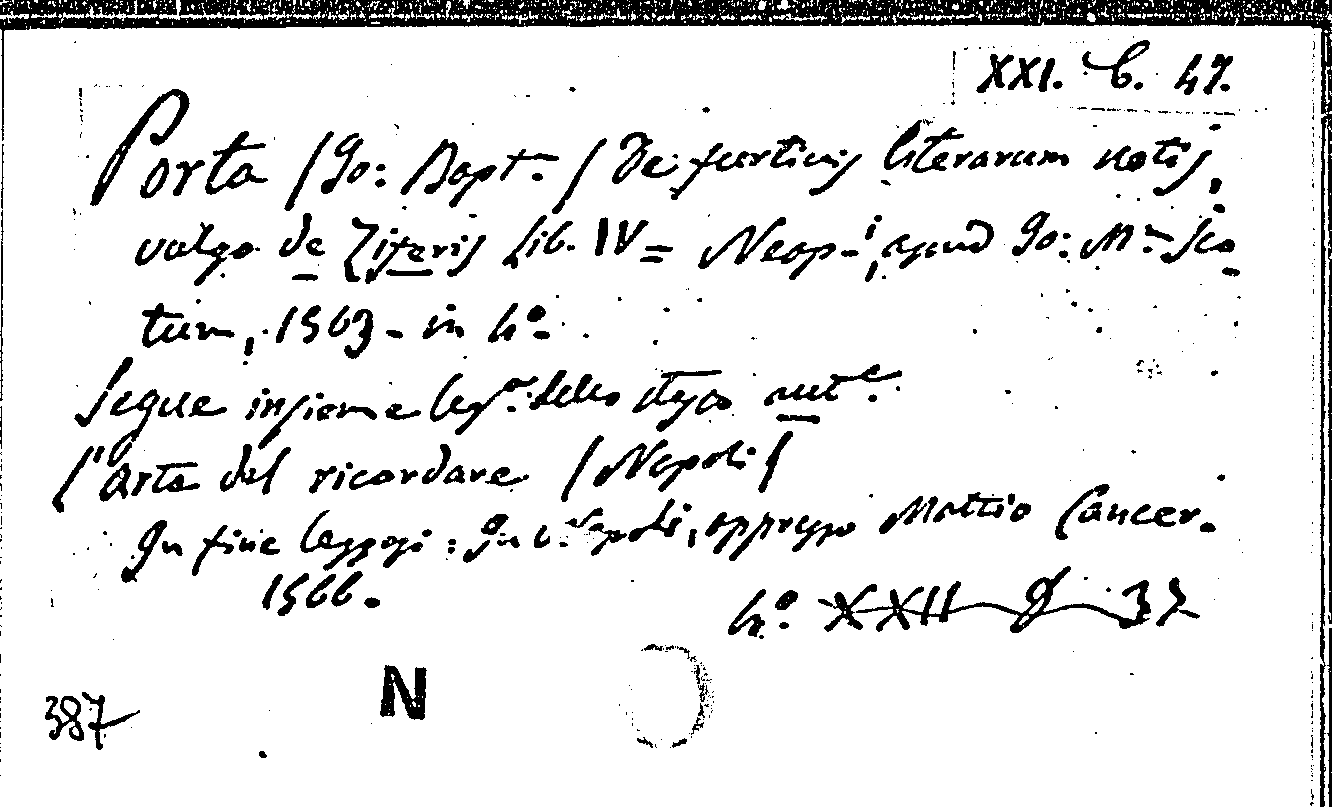 XXI. C. 47.
Porta / Jo: Bapt. / De furtivis literarum notis,
vulgo de Ziferis Lib. IV = Neap.i, apud Jo: M. Sco
tum, 1563 - in 4°.
Segue insieme leg.a dello stesso aut.e
L'Arte del ricordare / Napoli /
In fine leggesi: In Napoli, appresso Mattio Cancer.
1566.
4.° XXII 37
N
387